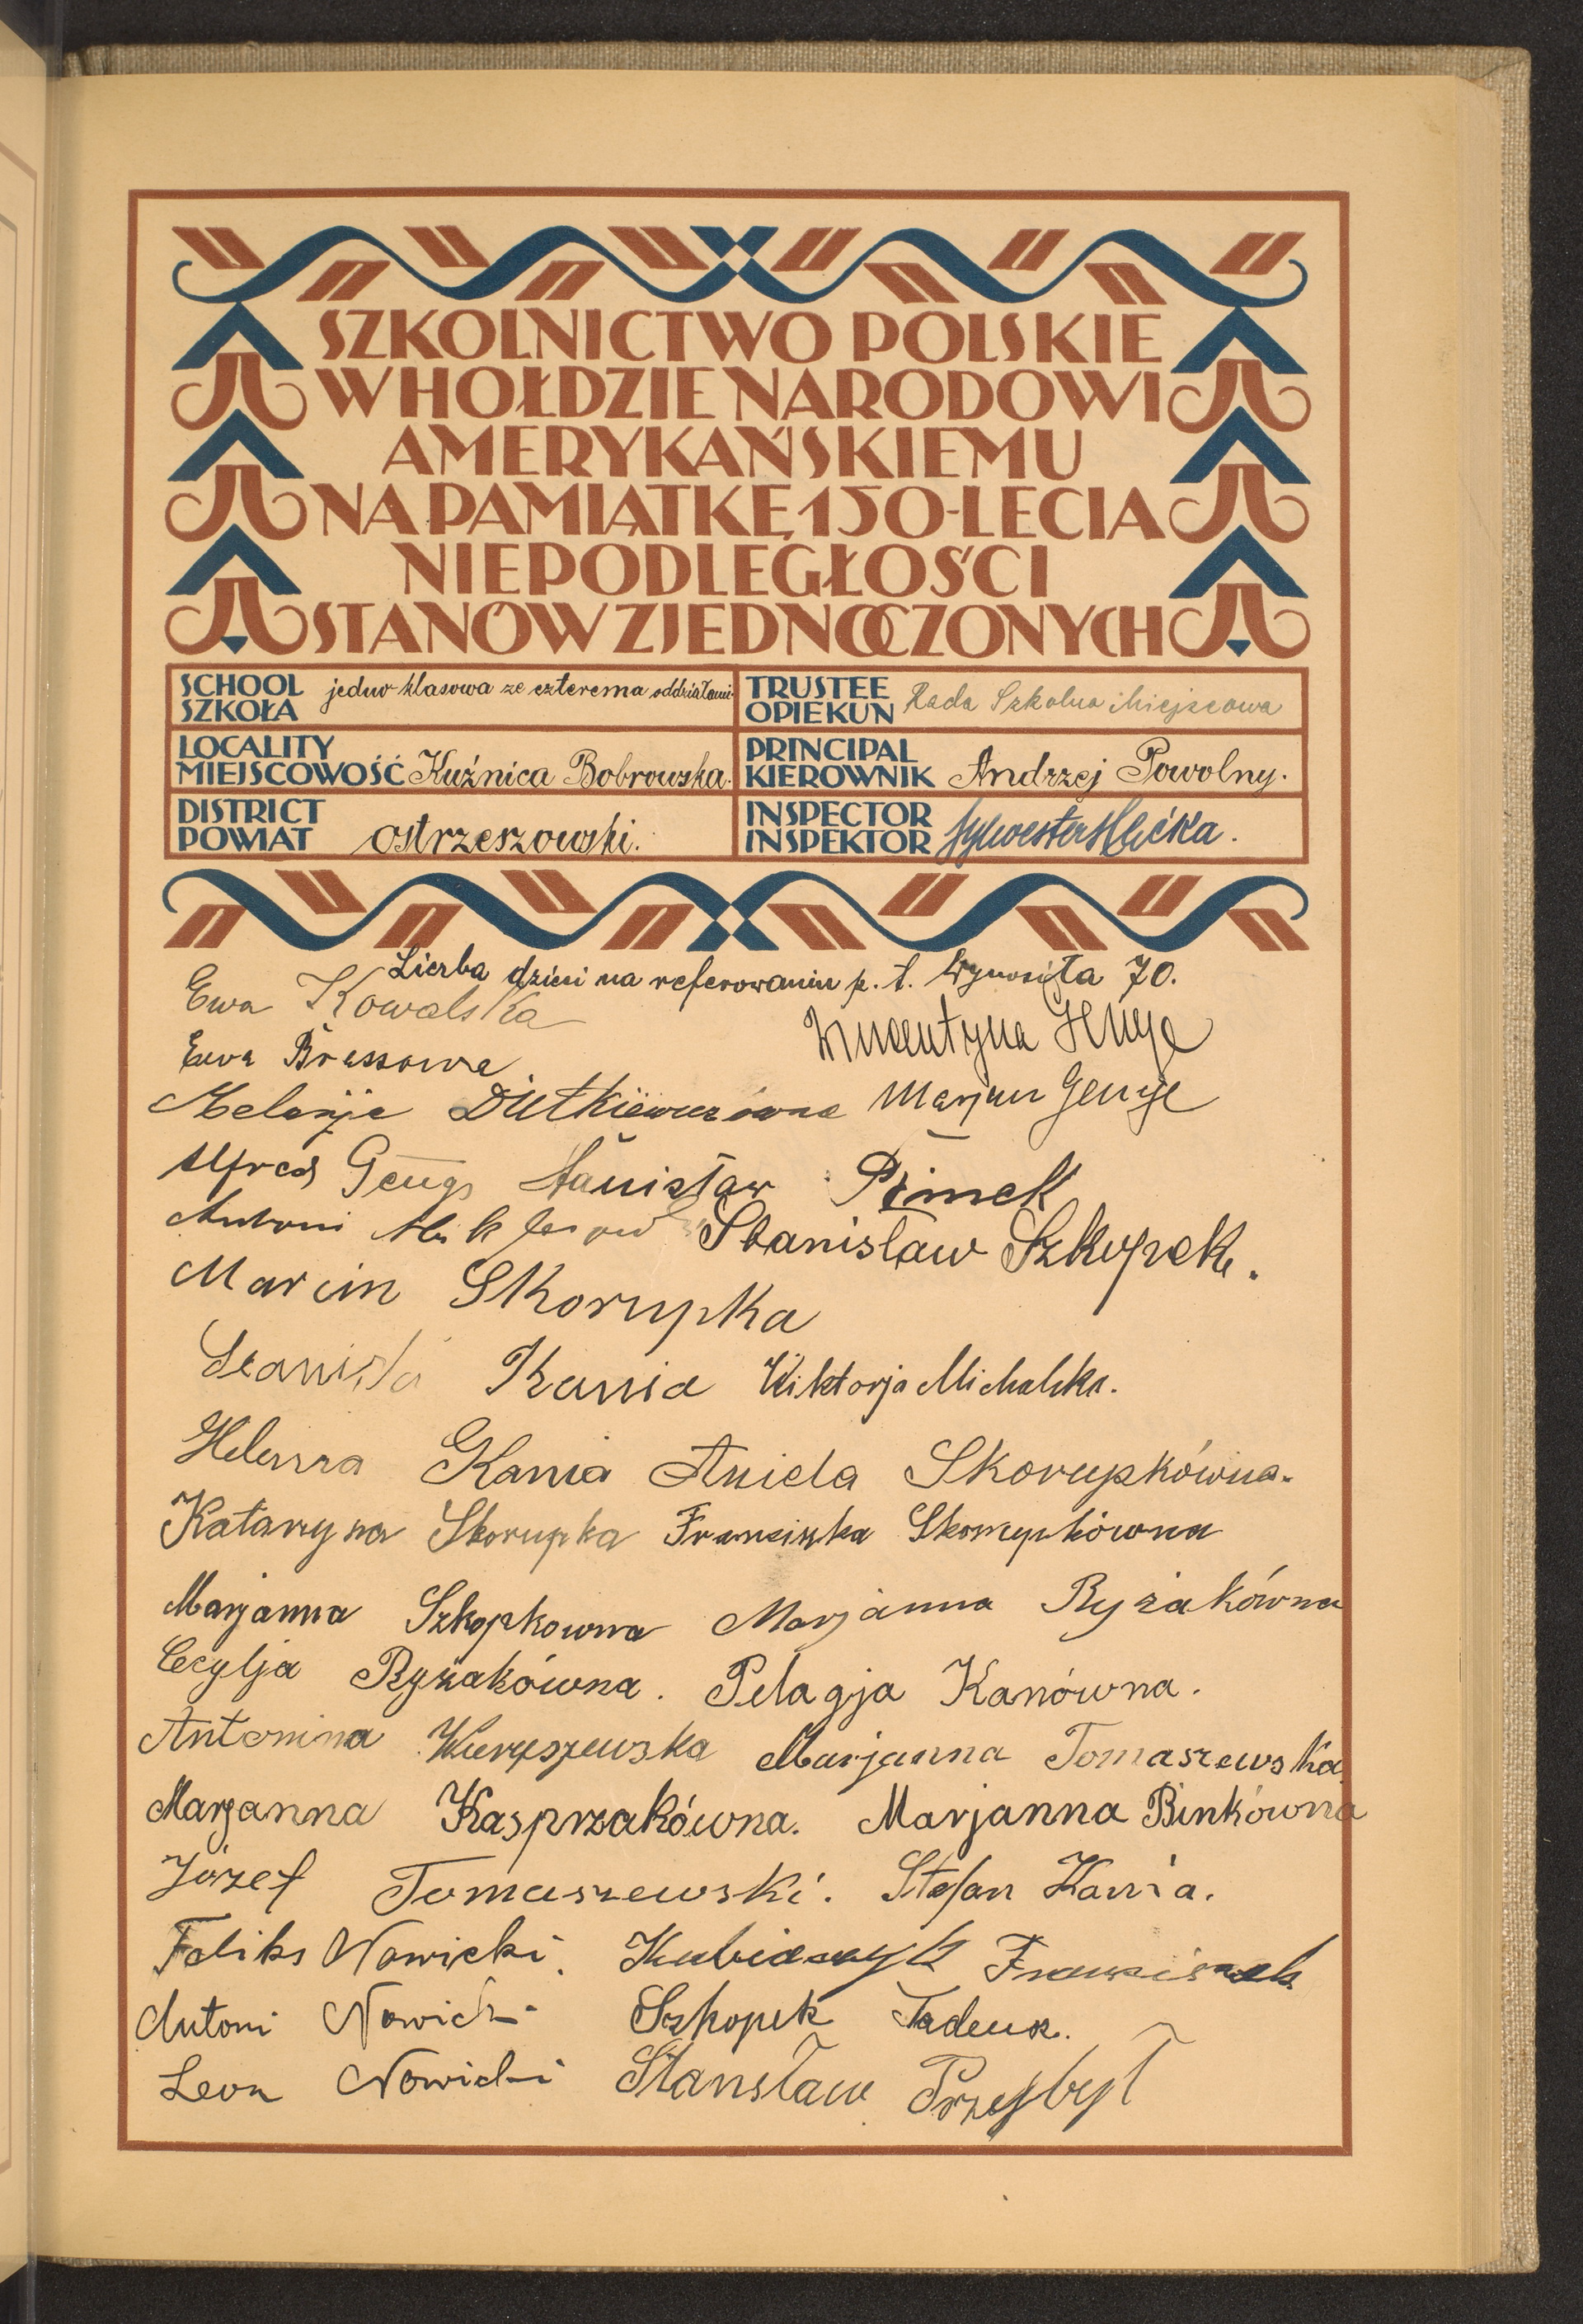 SZKOLNICTWO POLSKIE
W HOŁDZIE NARODOWI
AMERYKAŃSKIEMU
NA PAMIĄTKĘ 150-LECIA
NIEPODLEGŁOŚCI
STANÓW ZJEDNOCZONYCH
SCHOOL
SZKOŁA jedno-klasowa ze czterema oddziałami.
TRUSTEE
OPIEKUN Rada Szkolna Miejscowa
LOCALITY
MIEJSCOWOŚĆ Kuźnica Bobrowska.
PRINCIPAL
KIEROWNIK Andrzej Powolny.
DISTRICT
POWIAT ostrzeszowski.
INSPECTOR
INSPEKTOR Sylwester
Liczba dzieci na referowaniu p. t. wynosiła 70.
Ewa Kowalska
Ewa
Melanja Marjan
Alfred Stanisław
Antoni Stanisław Szkopek.
Marcin Skorupka
Kania Wiktorja Michalska.
Helena Kania Aniela Skorupkówna.
Katarzyna Skorupka Franciszka Skorupkówna
Marjanna Szkopkowna Marjanna Ryżakówna
Cecylja Ryżakówna. Pelagja Kanówna.
Antonina Marjanna Tomaszewska
Marjanna Kasprzakówna. Marjanna Binkówna
Józef Tomaszewski. Stefan Kania.
Feliks Nowicki. Kubiaczyk Franciszek
Antoni Nowicki Szkopek Tadeusz.
Leon Nowicki Stansław Przybył